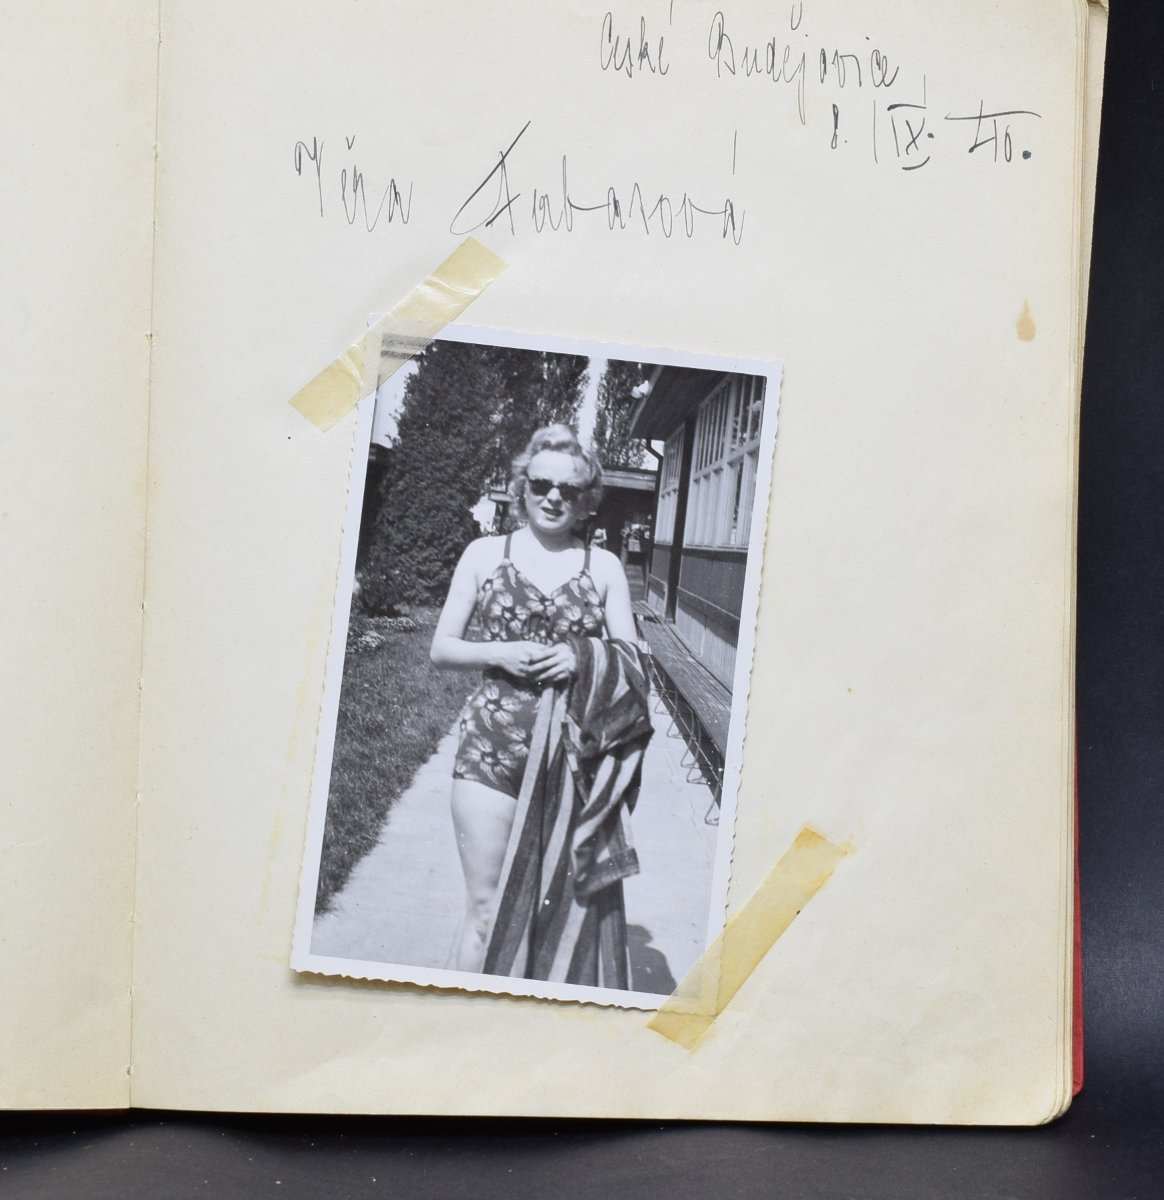 České Budějovice
8. IX. 40.
Věra